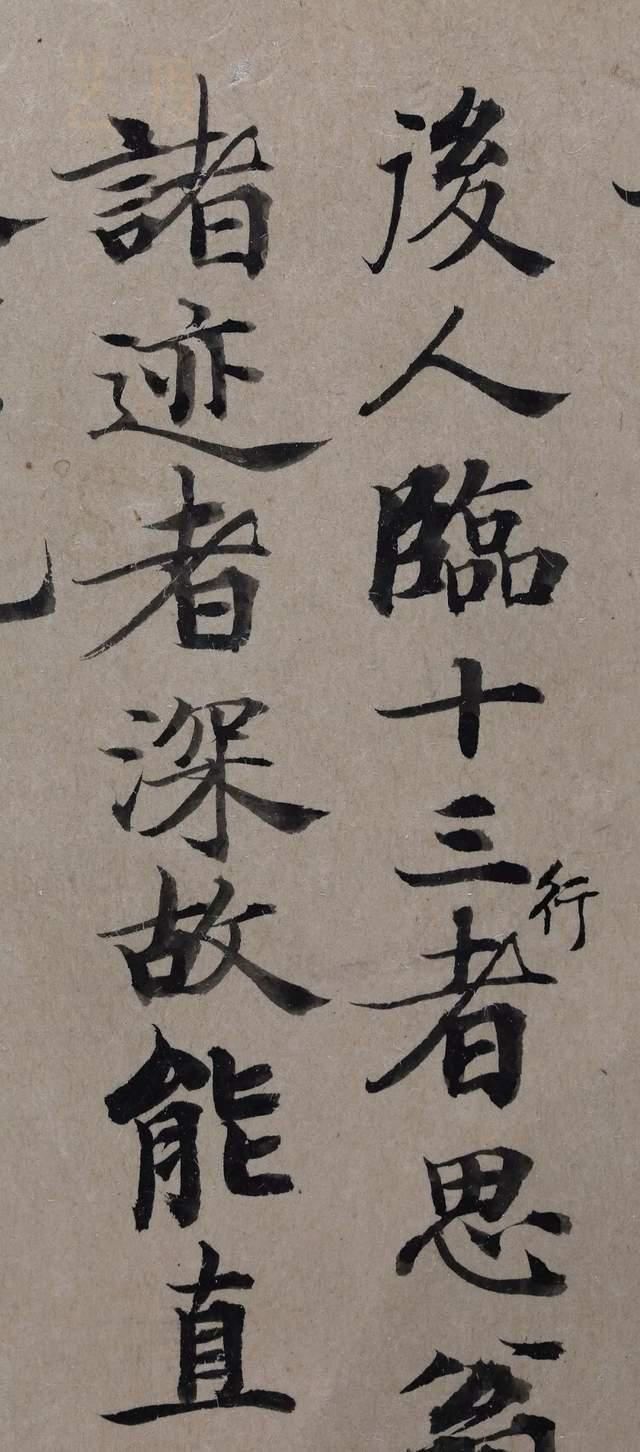 後人臨十三行者思翁
諸迹者深故能直